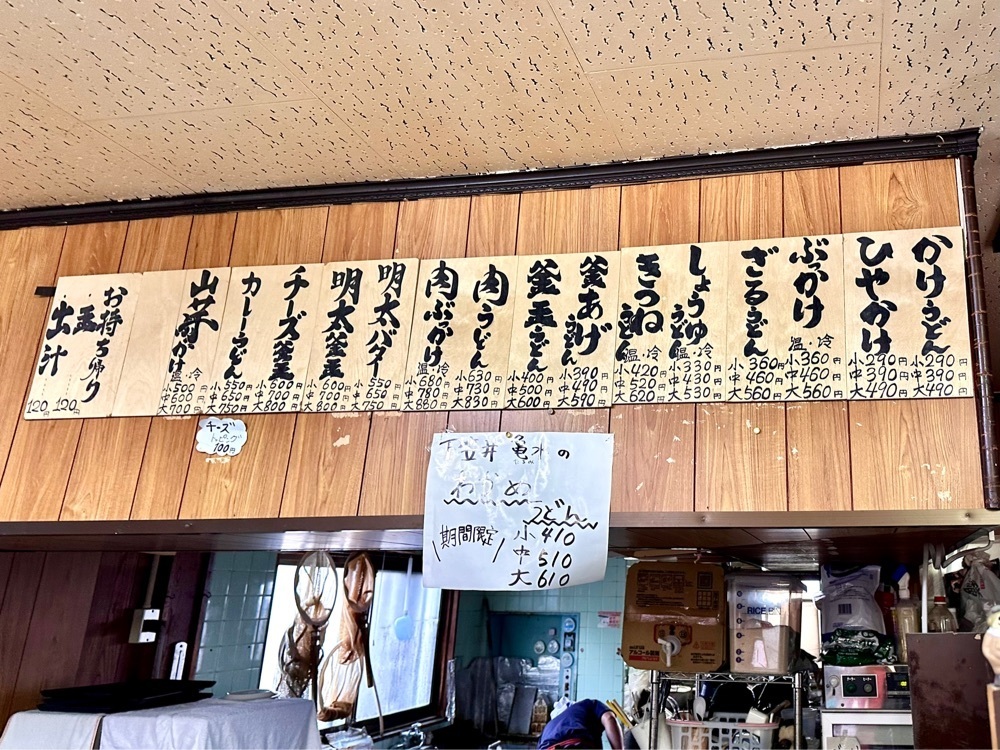 かけうどん
小290円
中390円
大490円
ひやかけ
小290円
中390円
大490円
ぶっかけ
温・冷
小360円
中460円
大560円
ざるうどん
小360円
中460円
大560円
しょうゆうどん
温・冷
小330円
中430円
大530円
きつねうどん
温・冷
小420円
中520円
大620円
釜あげうどん
小390円
中490円
大590円
釜玉うどん
小400円
中500円
大600円
肉うどん
小630円
中730円
大830円
肉ぶっかけ
温・冷
小680円
中780円
大880円
明太バター
小550円
中650円
大750円
明太釜玉
小600円
中700円
大800円
チーズ釜玉
小600円
中700円
大800円
カレーうどん
小550円
中650円
大750円
山芋ぶっかけ
温・冷
小500円
中600円
大700円
お持ちかえり
玉
120円
出汁
120円
チーズ
トッピング
100円
下笠井 亀水の
わかめ
うどん
期間限定
小410
中510
大610
RICE BOX